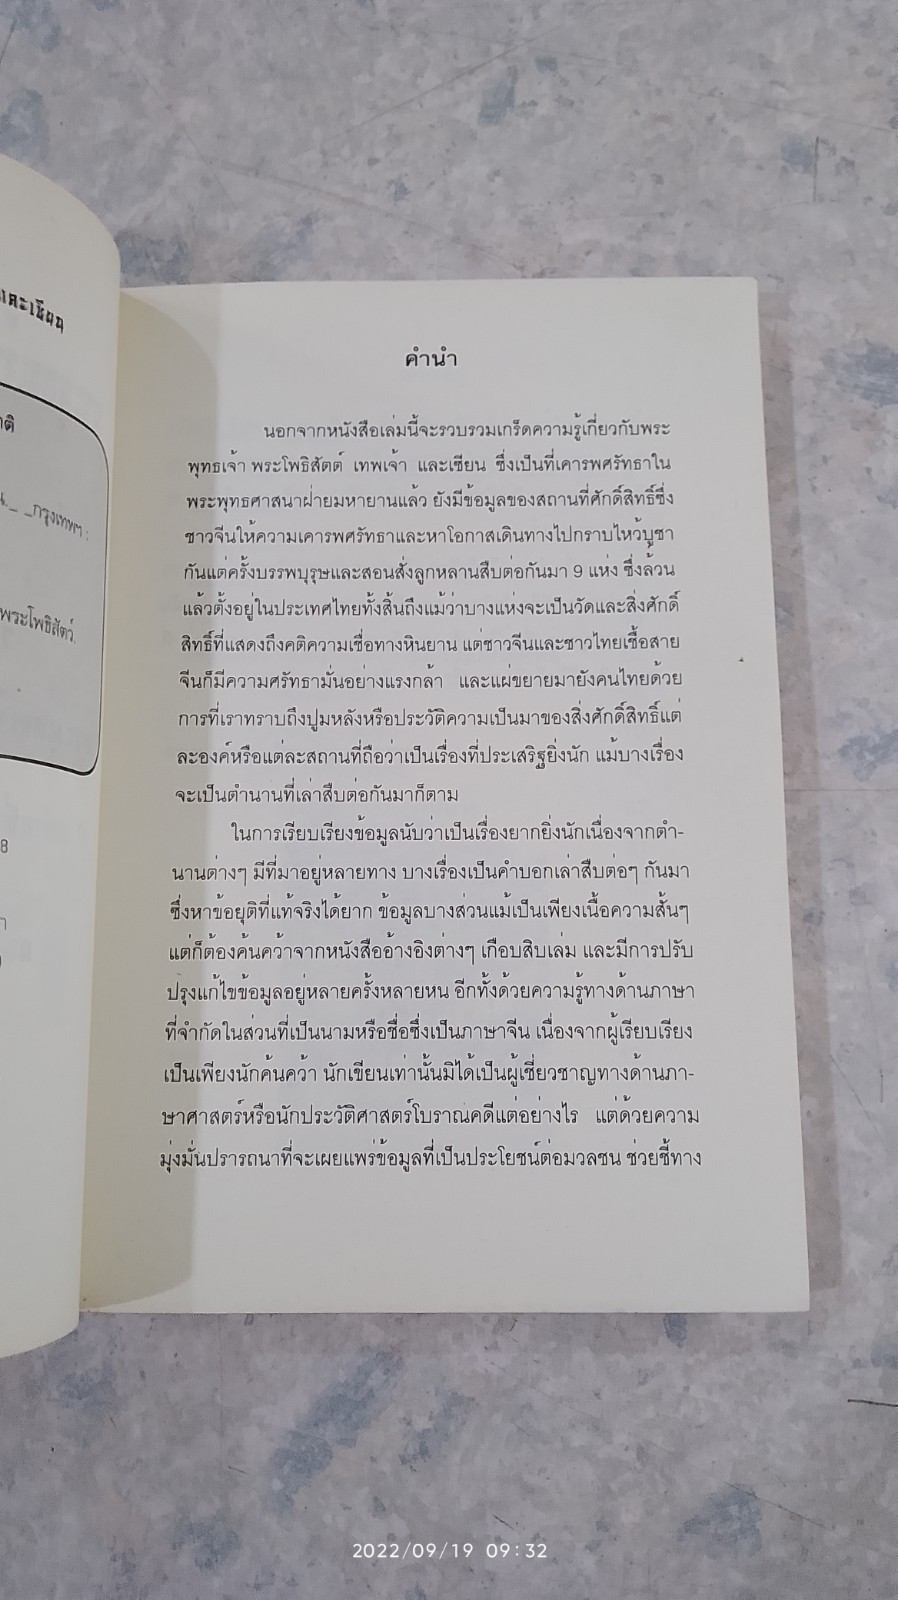 และเซียน
าติ
น._ _กรุงเทพฯ :
พระโพธิสัตว์.
8
คำนำ
นอกจากหนังสือเล่มนี้จะรวบรวมเกร็ดความรู้เกี่ยวกับพระ
พุทธเจ้า พระโพธิสัตต์ เทพเจ้า และเซียน ซึ่งเป็นที่เคารพศรัทธาใน
พระพุทธศาสนาฝ่ายมหายานแล้ว ยังมีข้อมูลของสถานที่ศักดิ์สิทธิ์ซึ่ง
ชาวจีนให้ความเคารพศรัทธาและหาโอกาสเดินทางไปกราบไหว้บูชา
กันแต่ครั้งบรรพบุรุษและสอนสั่งลูกหลานสืบต่อกันมา 9 แห่ง ซึ่งล้วน
แล้วตั้งอยู่ในประเทศไทยทั้งสิ้นถึงแม้ว่าบางแห่งจะเป็นวัดและสิ่งศักดิ์
สิทธิ์ที่แสดงถึงคติความเชื่อทางหินยาน แต่ชาวจีนและชาวไทยเชื้อสาย
จีนก็มีความศรัทธามั่นอย่างแรงกล้า และแผ่ขยายมายังคนไทยด้วย
การที่เราทราบถึงปูมหลังหรือประวัติความเป็นมาของสิ่งศักดิ์สิทธิ์แต่
ละองค์หรือแต่ละสถานที่ถือว่าเป็นเรื่องที่ประเสริฐยิ่งนัก แม้บางเรื่อง
จะเป็นตำนานที่เล่าสืบต่อกันมาก็ตาม
ในการเรียบเรียงข้อมูลนับว่าเป็นเรื่องยากยิ่งนักเนื่องจากตำ-
นานต่างๆ มีที่มาอยู่หลายทาง บางเรื่องเป็นคำบอกเล่าสืบต่อๆ กันมา
ซึ่งหาข้อยุติที่แท้จริงได้ยาก ข้อมูลบางส่วนแม้เป็นเพียงเนื้อความสั้นๆ
แต่ก็ต้องค้นคว้าจากหนังสืออ้างอิงต่างๆ เกือบสิบเล่ม และมีการปรับ
ปรุงแก้ไขข้อมูลอยู่หลายครั้งหลายหน อีกทั้งด้วยความรู้ทางด้านภาษา
ที่จำกัดในส่วนที่เป็นนามหรือชื่อซึ่งเป็นภาษาจีน เนื่องจากผู้เรียบเรียง
เป็นเพียงนักค้นคว้า นักเขียนเท่านั้นมิได้เป็นผู้เชี่ยวชาญทางด้านภา-
ษาศาสตร์หรือนักประวัติศาสตร์โบราณคดีแต่อย่างไร แต่ด้วยความ
มุ่งมั่นปรารถนาที่จะเผยแพร่ข้อมูลที่เป็นประโยชน์ต่อมวลชน ช่วยชี้ทาง
2022/09/19 09:32